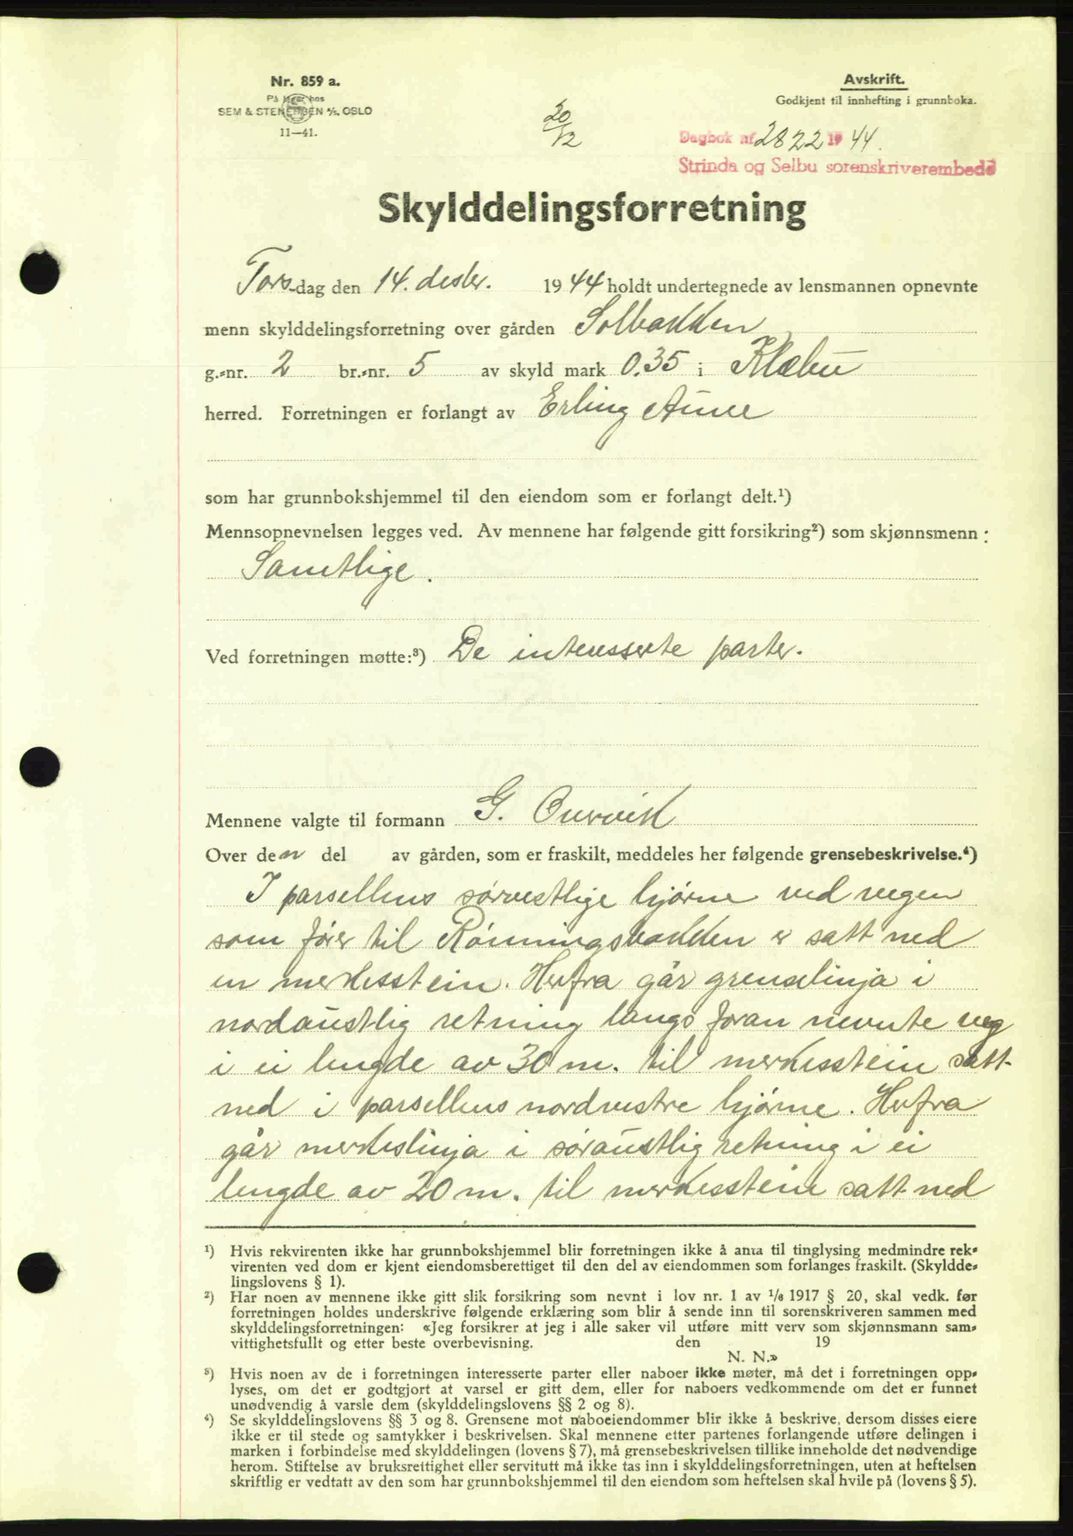 Nr. 859 a.
På lager hos
SEM & STENERSEN A/S. OSLO
11—41.
Avskrift.
Godkjent til innhefting i grunnboka.
20/12
Dagbok nr. 2822 1944.
Strinda og Selbu sorenskriverembede
Skylddelingsforretning
Torsdag den 14. desbr. 1944 holdt undertegnede av lensmannen opnevnte
menn skylddelingsforretning over gården Solbakken
g.-nr. 2 br.-nr. 5 av skyld mark 0.35 i Klæbu
herred. Forretningen er forlangt av Erling Aune
som har grunnbokshjemmel til den eiendom som er forlangt delt.¹)
Mennsopnevnelsen legges ved. Av mennene har følgende gitt forsikring²) som skjønnsmenn:
Samtlige.
Ved forretningen møtte:³) De interesserte parter.
Mennene valgte til formann G.
Over den del av gården, som er fraskilt, meddeles her følgende grensebeskrivelse.⁴)
I parsellens sørvestlige hjørne ved vegen
som fører til Rønningsbakken er satt ned
en merkesstein. Herfra går grenselinja i
nordaustlig retning langs foran nevnte veg
i ei lengde av 30 m. til merkesstein satt
ned i parsellens nordvestre hjørne. Herfra
går merkeslinja i søraustlig retning i ei
lengde av 20 m. til merkesstein satt ned
¹) Hvis rekvirenten ikke har grunnbokshjemmel blir forretningen ikke å anta til tinglysing medmindre rek-
virenten ved dom er kjent eiendomsberettiget til den del av eiendommen som forlanges fraskilt. (Skyldde-
lingslovens § 1).
²) Har noen av mennene ikke gitt slik forsikring som nevnt i lov nr. 1 av 1/6 1917 § 20, skal vedk. før
forretningen holdes underskrive følgende erklæring som blir å sende inn til sorenskriveren sammen med
skylddelingsforretningen: «Jeg forsikrer at jeg i alle saker vil utføre mitt verv som skjønnsmann sam-
vittighetsfullt og etter beste overbevisning. den 19
N. N.»
³) Hvis noen av de i forretningen interesserte parter eller naboer ikke møter, må det i forretningen opp-
lyses, om det er godtgjort at varsel er gitt dem, eller for naboers vedkommende om det er funnet
unødvendig å varsle dem (skylddelingslovens §§ 2 og 8).
⁴) Se skylddelingslovens §§ 3 og 8. Grensene mot naboeiendommer blir ikke å beskrive, dersom disses eiere
ikke er til stede og samtykker i beskrivelsen. Skal mennene etter partenes forlangende utføre delingen i
marken i forbindelse med skylddelingen (lovens § 7), må grensebeskrivelsen tillike inneholde det nødvendige
herom. Stiftelse av bruksrettighet eller servitutt må ikke tas inn i skylddelingsforretningen, uten at heftelsen
skriftlig er vedtatt av den som har grunnbokshjemmel til den eiendom som heftelsen skal hvile på (lovens § 5).